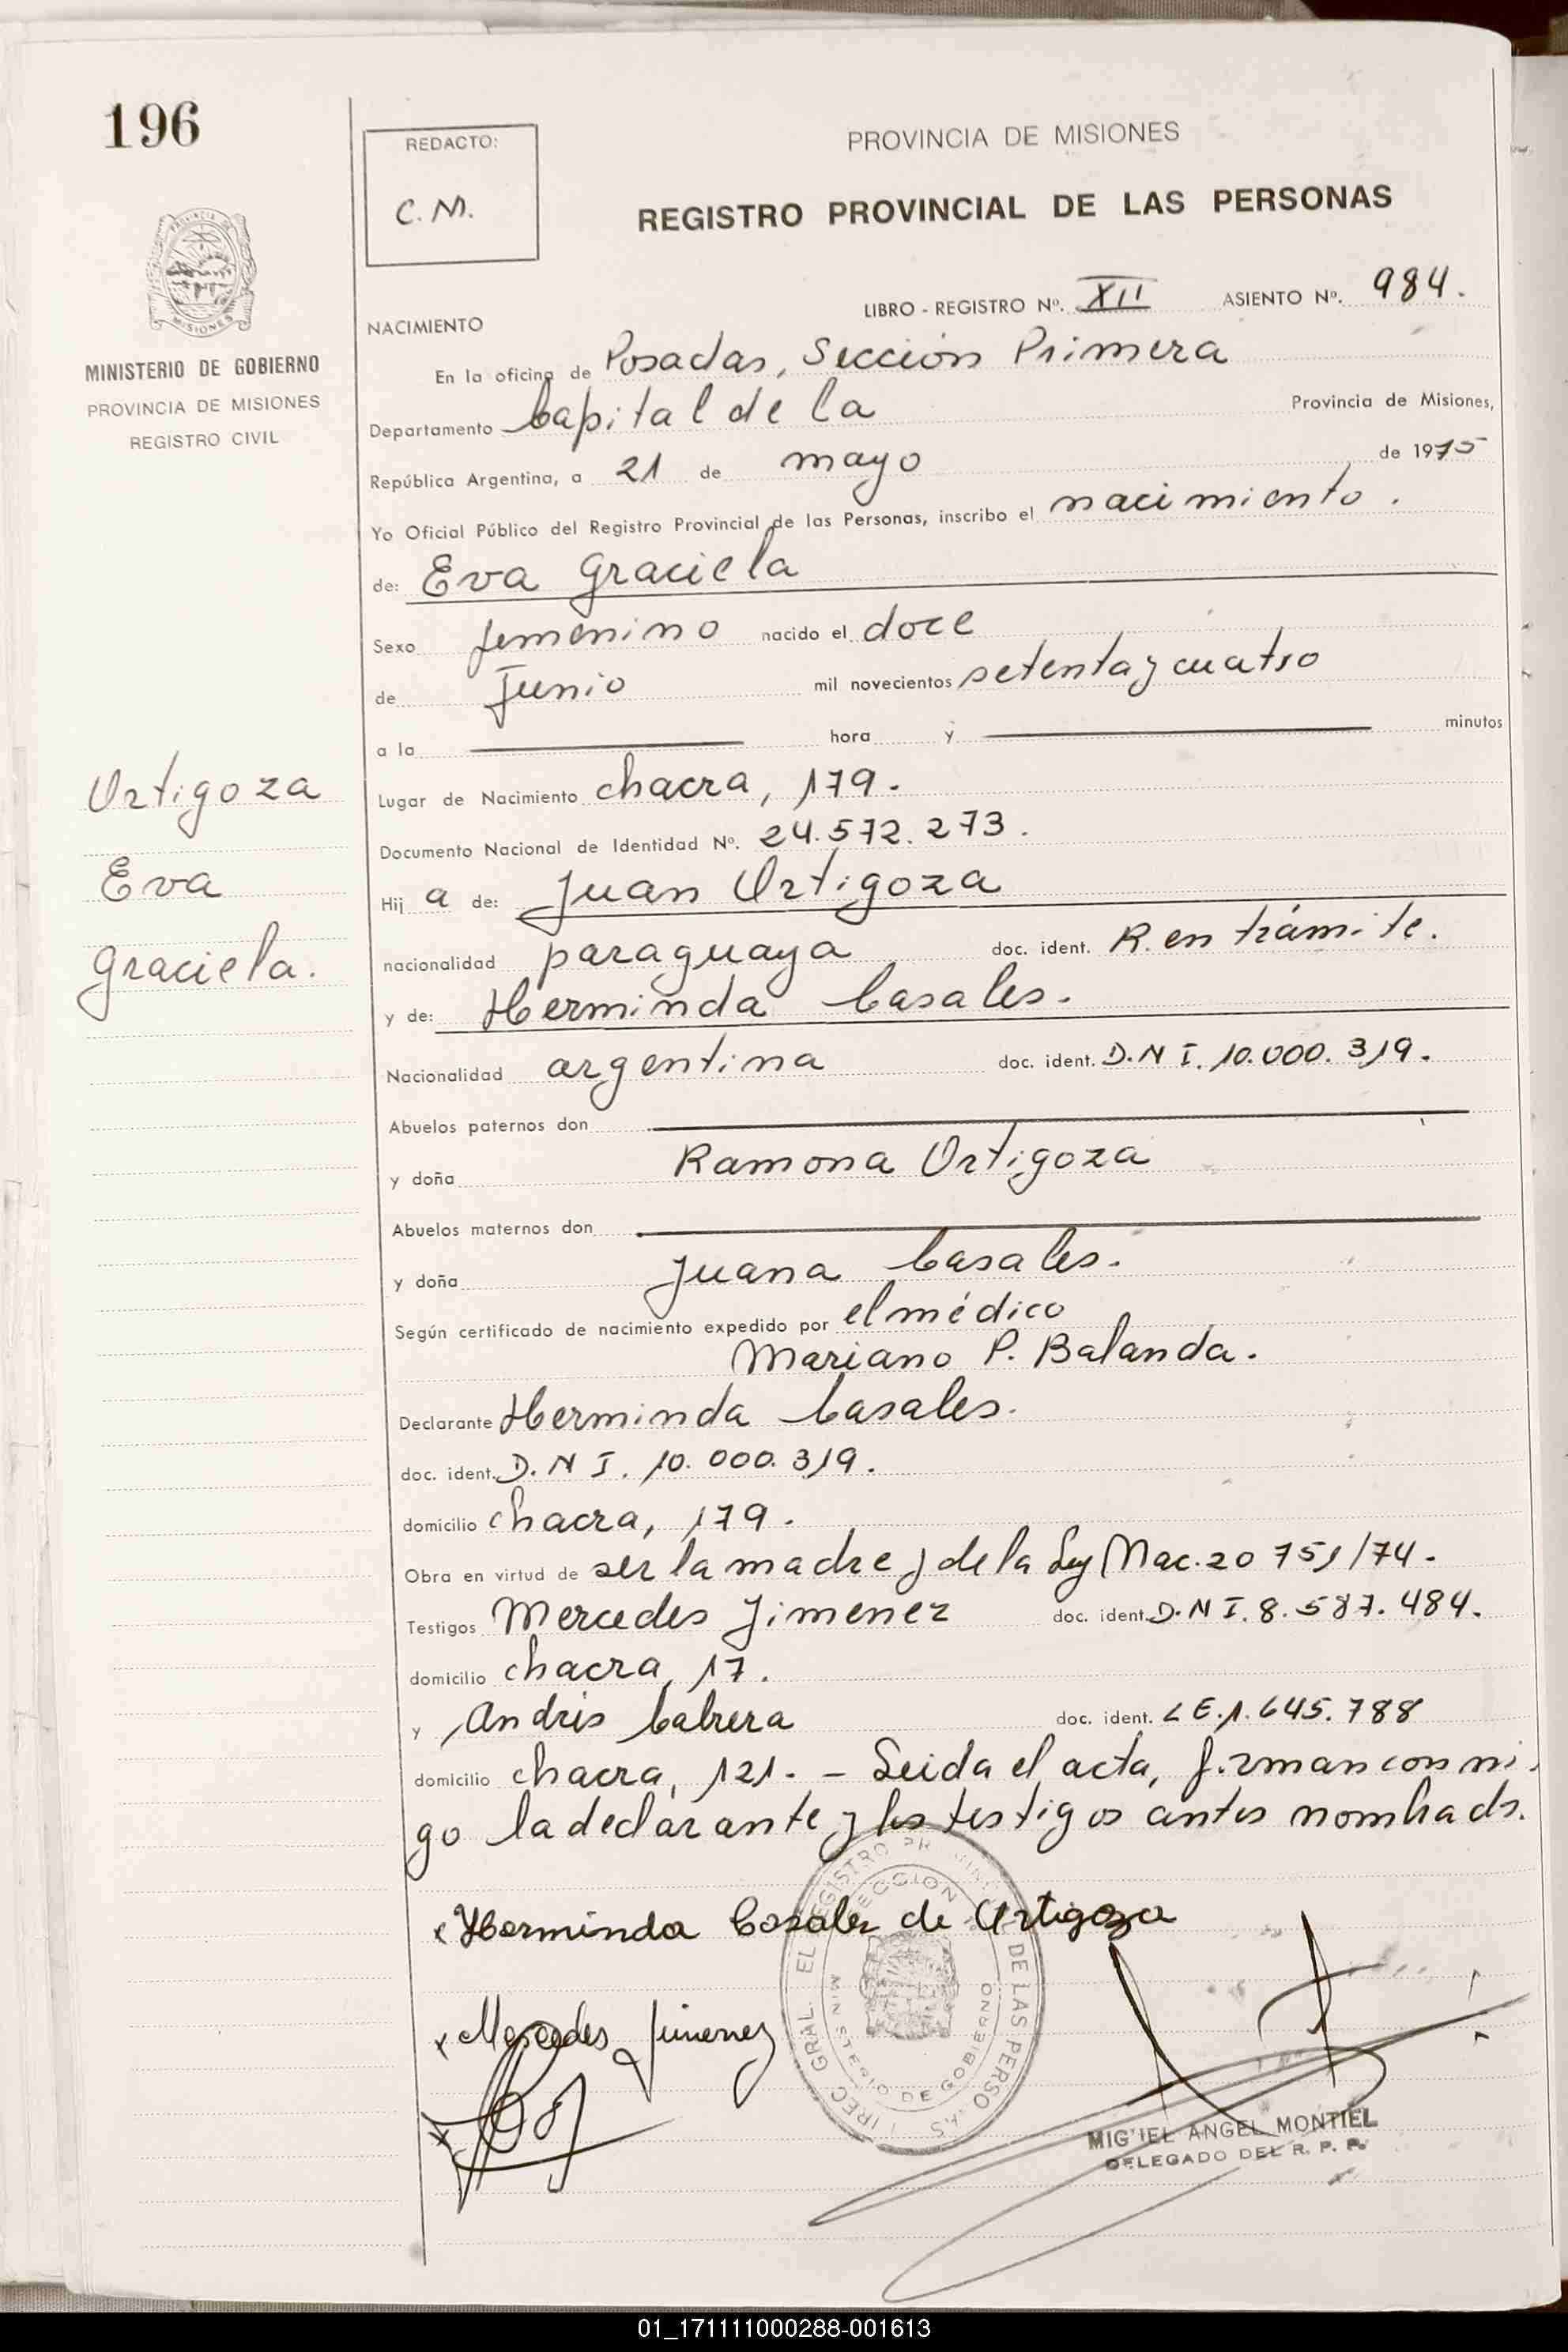 196
REDACTO:
C. M.
PROVINCIA DE MISIONES
REGISTRO PROVINCIAL DE LAS PERSONAS
PROVINCIA DE
MISIONES
MINISTERIO DE GOBIERNO
PROVINCIA DE MISIONES
REGISTRO CIVIL
LIBRO - REGISTRO Nº. XII ASIENTO Nº. 984.
NACIMIENTO
En la oficina de Posadas, Sección Primera
Departamento Capital de la Provincia de Misiones,
República Argentina, a 21 de mayo de 1975
Yo Oficial Público del Registro Provincial de las Personas, inscribo el nacimiento.
de: Eva Graciela
Sexo femenino nacido el doce
de Junio mil novecientos setenta y cuatro
a la hora y minutos
Ortigoza
Eva
Graciela.
Lugar de Nacimiento chacra, 179.
Documento Nacional de Identidad Nº. 24.572.273.
Hij a de: Juan Ortigoza
nacionalidad paraguaya doc. ident. R. en trámite.
y de: Herminda Casales.
Nacionalidad argentina doc. ident. D.N I. 10.000.319.
Abuelos paternos don
y doña Ramona Ortigoza
Abuelos maternos don
y doña Juana Casales.
Según certificado de nacimiento expedido por el médico
Mariano P. Balanda.
Declarante Herminda Casales.
doc. ident. D. N I. 10. 000. 319.
domicilio chacra, 179.
Obra en virtud de ser la madre y de la Ley Nac. 20 751/74.
Testigos Mercedes Jimenez doc. ident. D.N I. 8.587.484.
domicilio chacra, 17.
y Andrés Cabrera doc. ident. L E. 1.645.788
domicilio chacra, 121. - Leida el acta, firman conmi
go la declarante y los testigos antes nombrads.
x Herminda Casales de Ortigoza
x Mercedes Jimenez
MINISTERIO DE GOBIERNO
MIG'IEL ANGEL MONTIEL
DELEGADO DEL R. P. P.
01_171111000288-001613